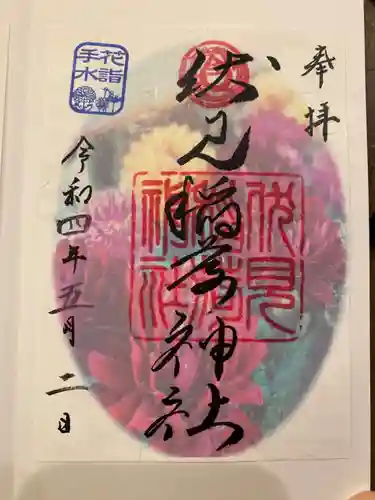 奉拝
伏見稲荷神社
伏見
稲荷
神社
令和四年五月二日
花詣
手水